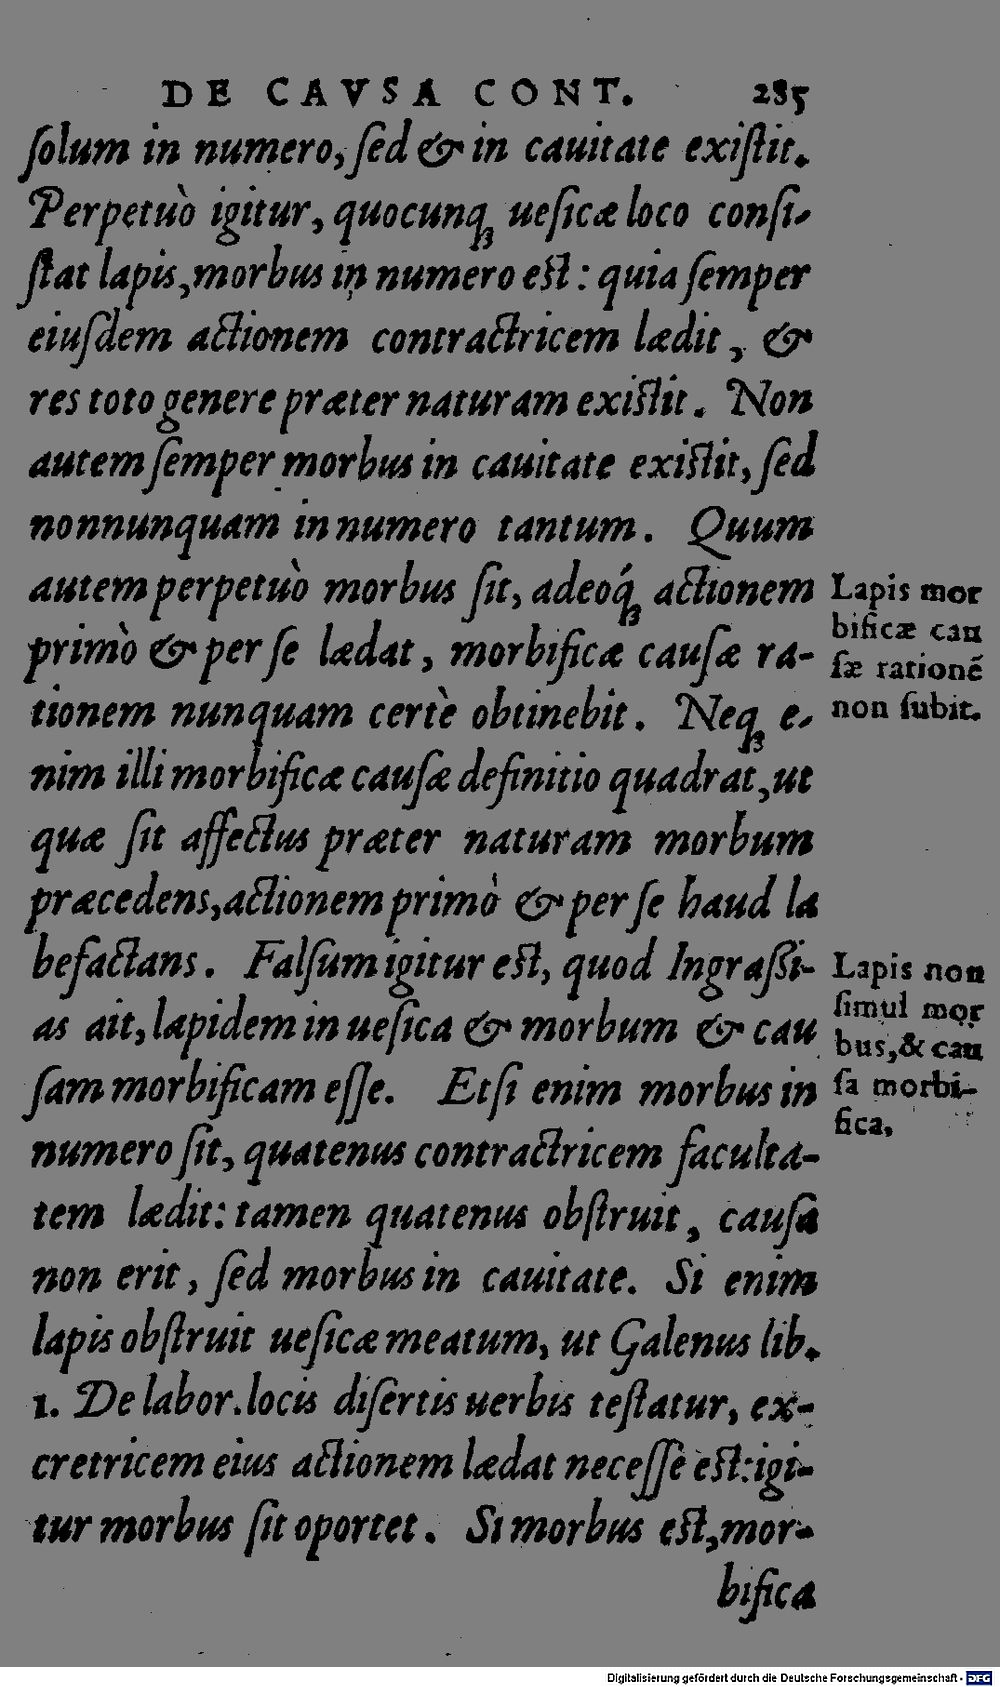 DE CAVSA CONT. 285
ſolum in numero, ſed & in cauitate exiſtit.
Perpetuò igitur, quocunqꝫ ueſicæ loco conſi-
ſtat lapis, morbus in numero eſt: quia ſemper
eiuſdem actionem contractricem lædit, &
res toto genere præter naturam exiſtit. Non
autem ſemper morbus in cauitate exiſtit, ſed
nonnunquam in numero tantum. Quum
autem perpetuò morbus ſit, adeoq́ꝫ actionem
primò & per ſe lædat, morbificæ cauſæ ra-
tionem nunquam certè obtinebit. Neqꝫ e-
nim illi morbificæ cauſæ definitio quadrat, ut
quæ ſit affectus præter naturam morbum
præcedens, actionem primò & per ſe haud la
befactans. Falſum igitur eſt, quod Ingraſſi-
as ait, lapidem in ueſica & morbum & cau
ſam morbificam eſſe. Etſi enim morbus in
numero ſit, quatenus contractricem faculta-
tem lædit: tamen quatenus obſtruit, cauſa
non erit, ſed morbus in cauitate. Si enim
lapis obſtruit ueſicæ meatum, ut Galenus lib.
1. De labor. locis diſertis uerbis teſtatur, ex-
cretricem eius actionem lædat neceſſe eſt: igi-
tur morbus ſit oportet. Si morbus eſt, mor-
bifica
Lapis mor
bificæ cau
ſæ rationẽ
non ſubit.
Lapis non
ſimul mor
bus, & cau
ſa morbi-
fica.
Digitalisierung gefördert durch die Deutsche Forschungsgemeinschaft - DFG